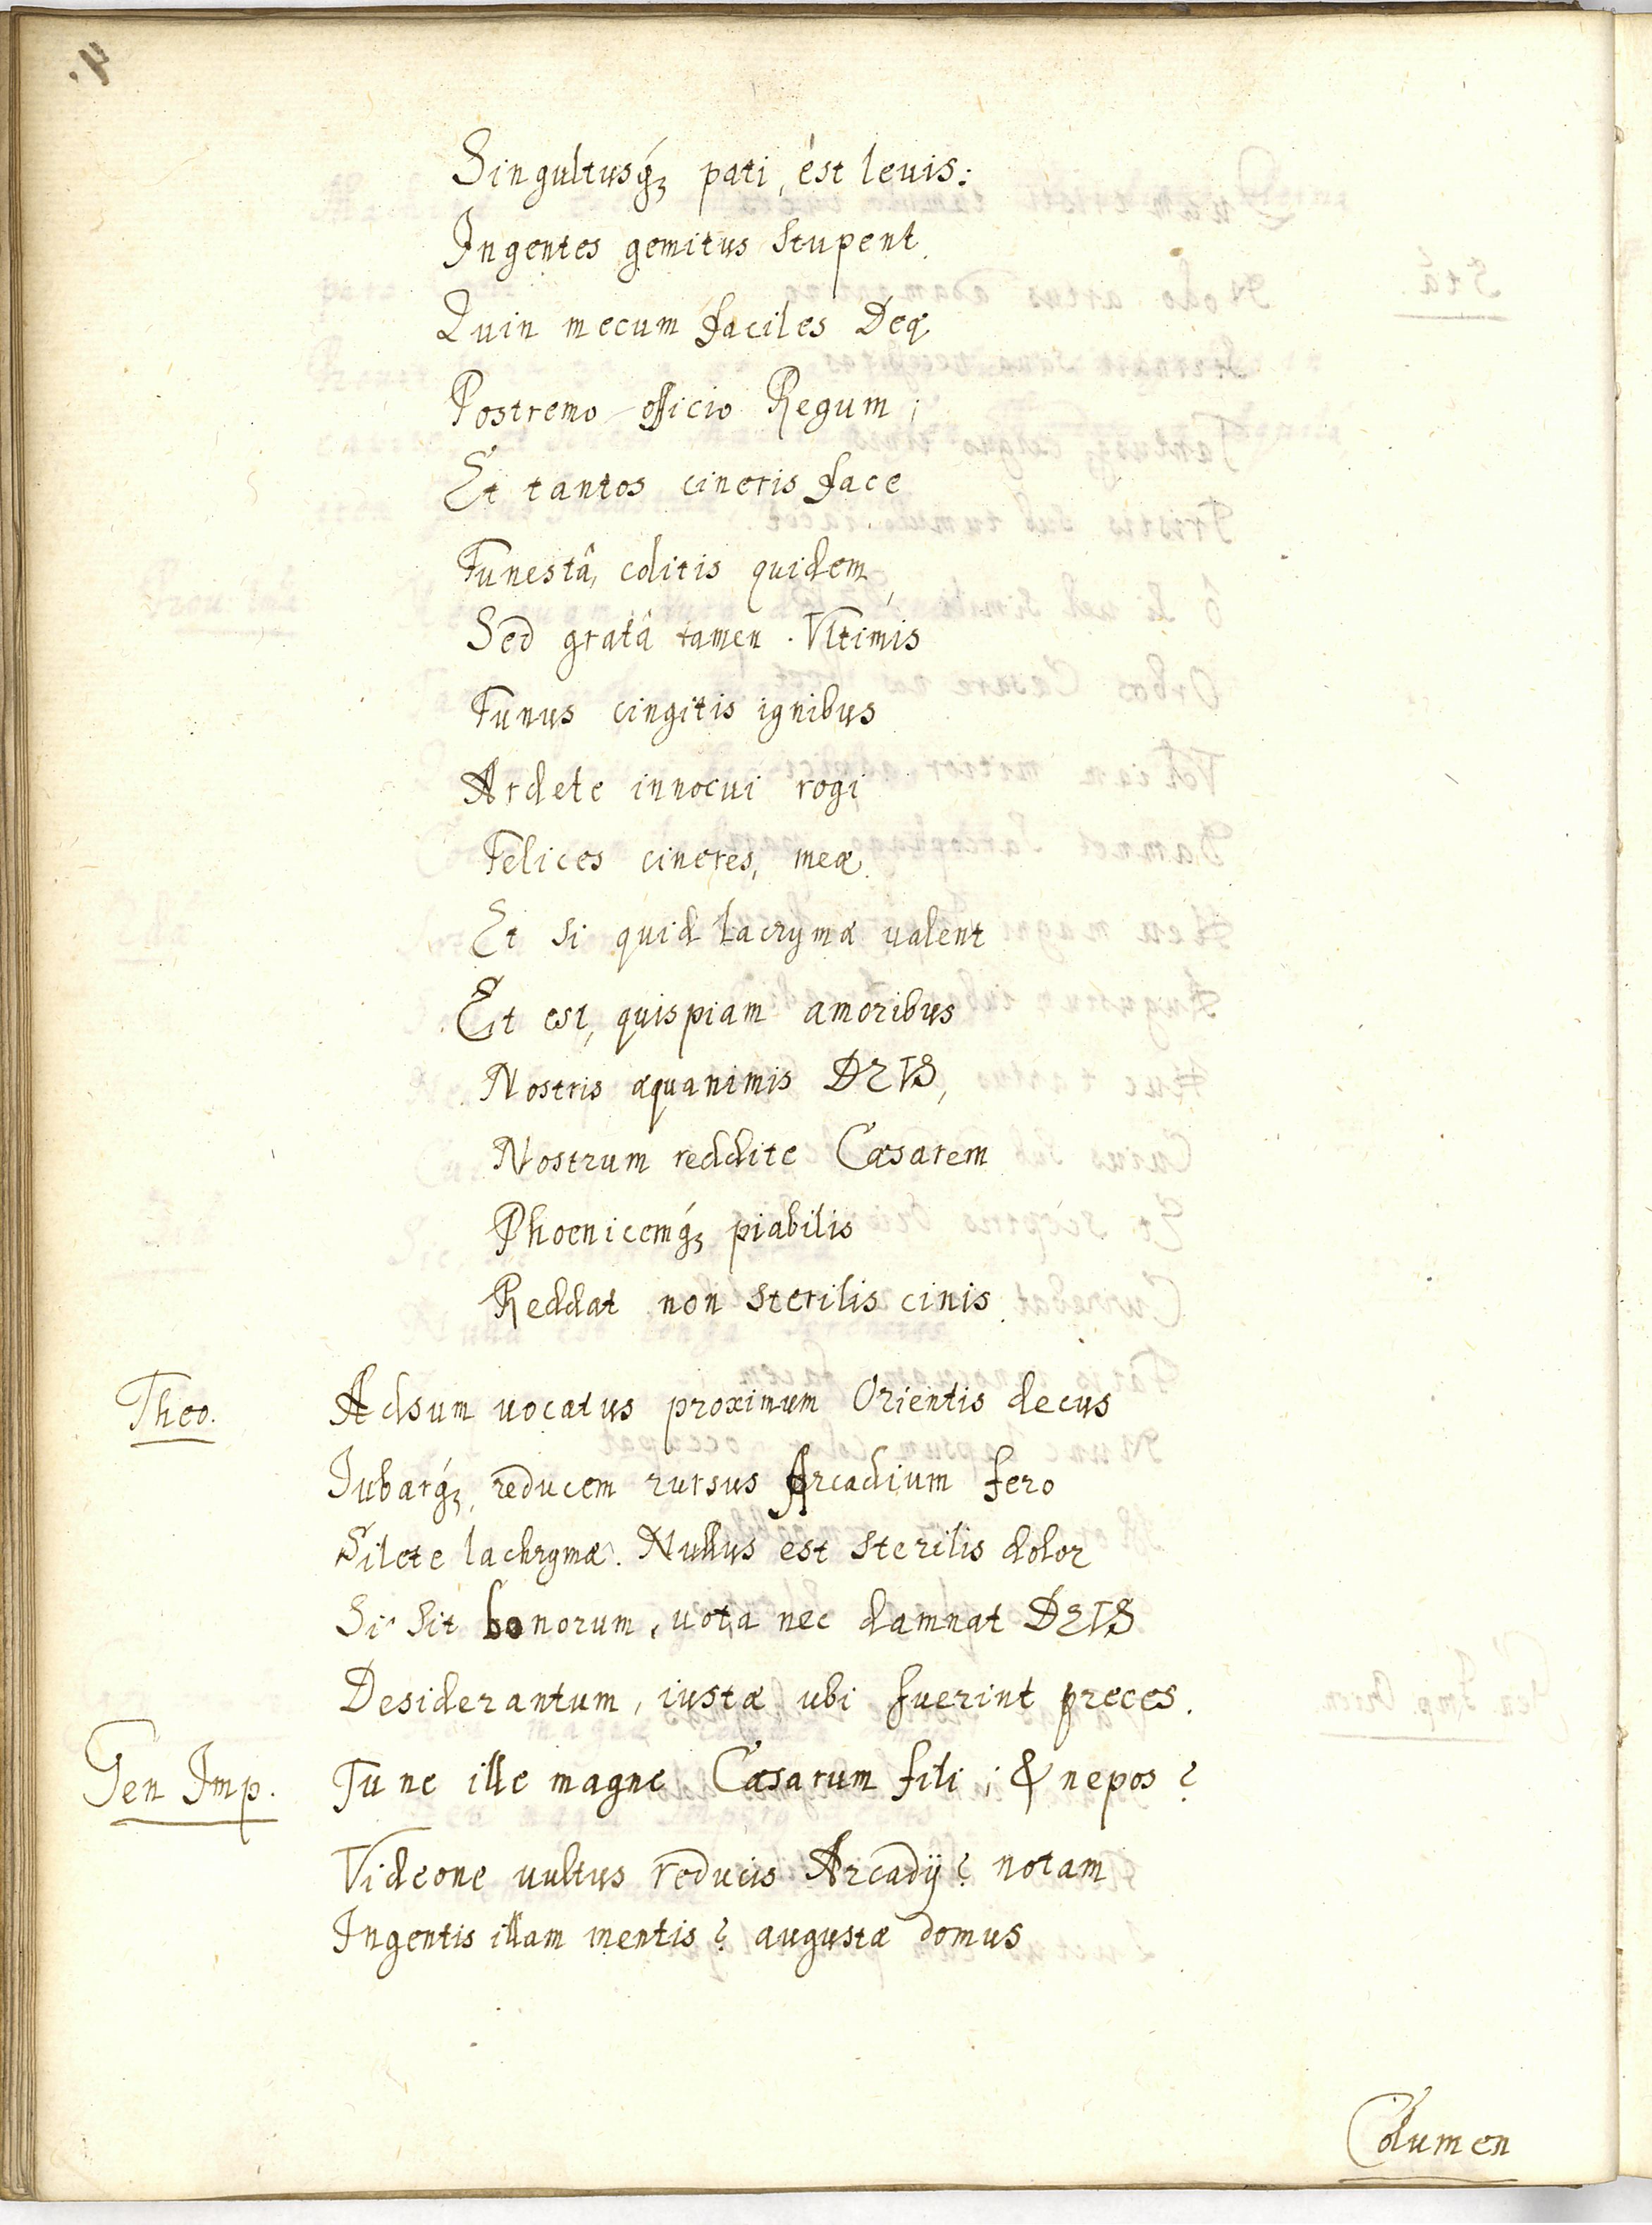 4.
Singultusq́ꝫ pati, ést leuis:
Ingentes gemitus stupent.
Quin mecum faciles Deę
Postremo officio Regum;
Et tantos cineris face
Funestâ, colitis quidem,
Sed gratâ tamen. Vltimis
Funus cingitis ignibus
Ardete innocui rogi
Felices cineres, meæ.
Et si quid Lacrymæ valent
Et est, quispiam amoribus
Nostris æquanimis DEVS,
Nostrum reddite Cæsarem
Phoenicemq́ꝫ piabilis
Reddat non sterilis cinis.
Theo. Adsum uocatus proximum Orientis decus
Iubarq́ꝫ, reducem rursus Arcadium fero
Silete lachrymæ. Nullus est sterilis dolor
Si sit bonorum, uota nec damnat DEVS
Desiderantum, iustæ ubi fuerint preces.
Gen Imp. Tu ne ille magne Cæsarum fili; & nepos?
Videone uultus reducis Arcadij? notam
Ingentis illam mentis? augustæ domus
Columen